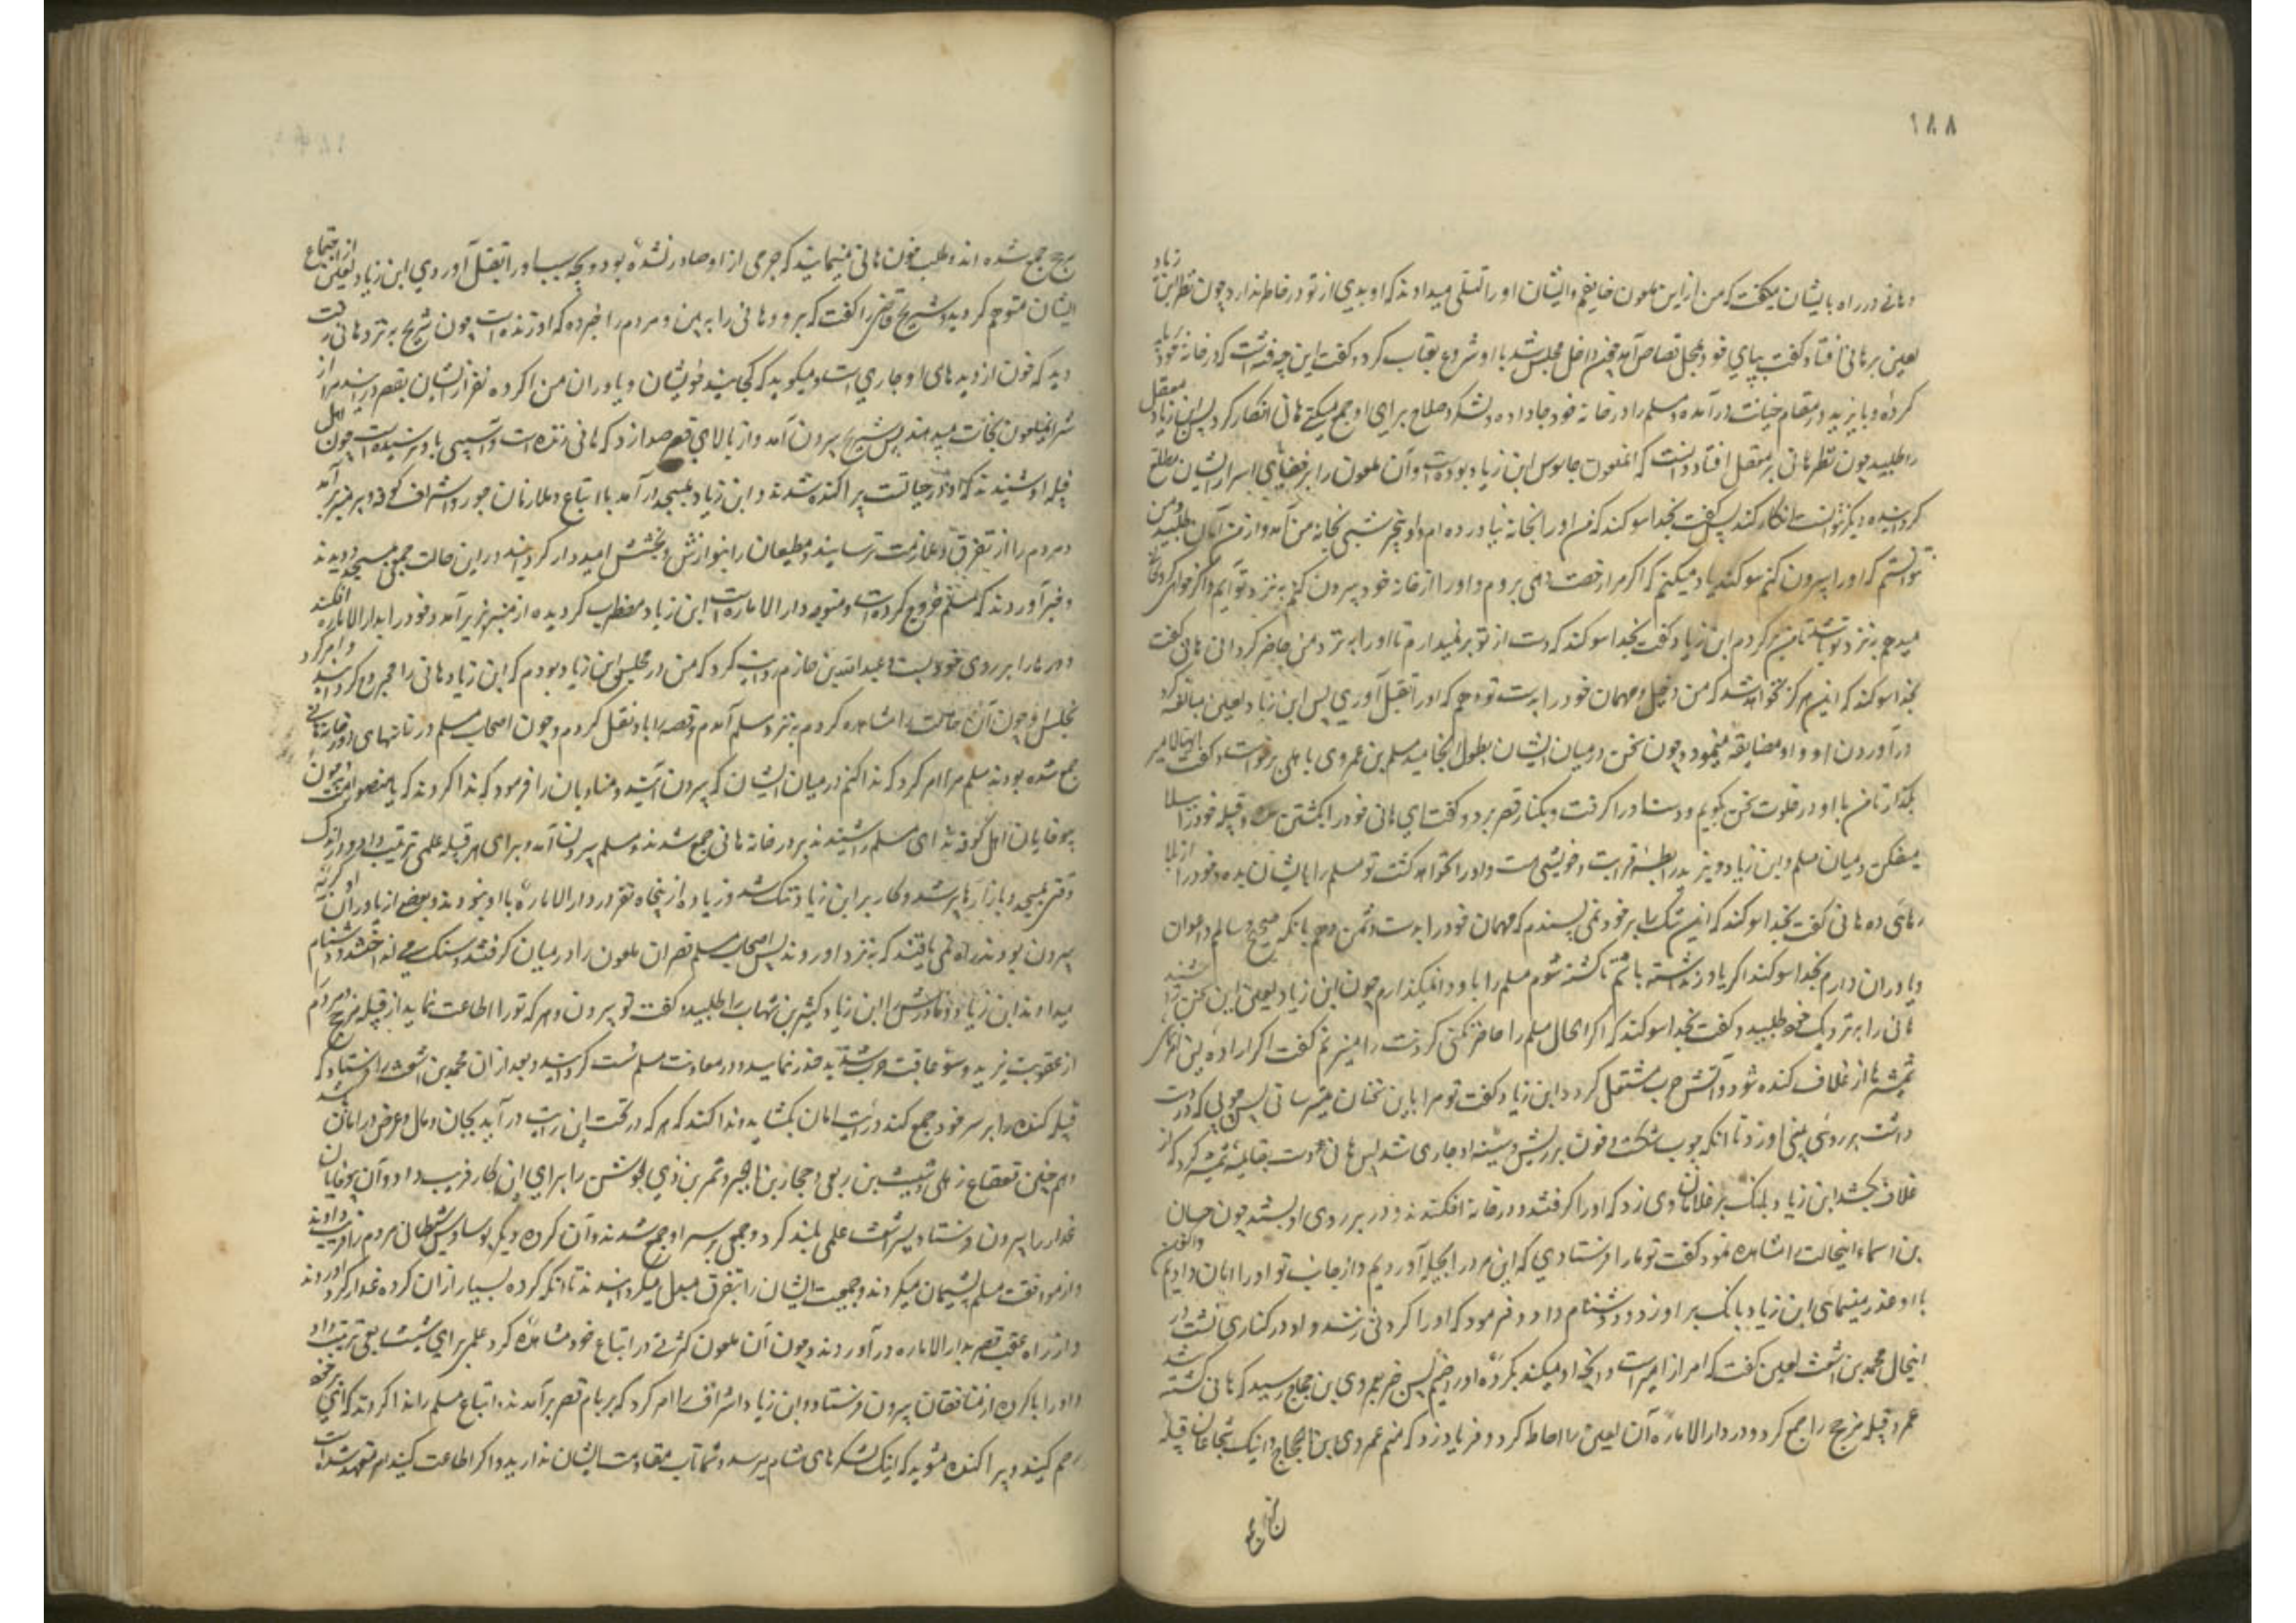 ۱۸۸
و هانی در راه بایشان میگفت که من از این ملعون خایفم و ایشان او را تسلی میدادند که او بدی از تو در خاطر ندارد چون نظر ابن زیاد
لعین بر هانی افتاد گفت بپای خود بمحل قصاص آمد چون داخل مجلس شد با او شروع بعتاب کرد و گفت این چه فتنه است که در خانه خود برپا
کرده و با یزید در مقام خیانت درآمده و مسلم را در خانه خود جا داده و لشکر و سلاح برای او جمع میکنی هانی انکار کرد پس ابن زیاد معقل
را طلبید چون نظر هانی بر معقل افتاد دانست که آنملعون جاسوس ابن زیاد بوده است و آن ملعون را بر خفایای اسرار ایشان مطلع
کردانیده دیگر نتوانست انکار کند پس گفت بخدا سوکند که من او را بخانه نیاورده ام و او بیخبر شبی بخانه من آمد و از من امان طلبید و من
نتوانستم که او را بیرون کنم سوکند یاد میکنم که اگر مرا رخصت دهی بروم و او را از خانه خود بیرون کنم به نزد تو آیم و اگر خواهی گروگان
میدهم به نزد تو باشد تا من برگردم ابن زیاد گفت بخدا سوکند که دست از تو برنمیدارم تا او را به نزد من حاضر کردانی هانی گفت
بخدا سوکند که این هرگز نخواهد شد که من دخیل و مهمان خود را بدست تو دهم که او را بقتل آوری پس ابن زیاد لعین مبالغه کرد
در آوردن او و او مضایقه مینمود و چون سخن در میان ایشان بطول انجامید مسلم بن عمروی باهلی برخواست و گفت ایها الامیر
بگذار تا من با او در خلوت سخن بگویم و دست او را گرفت و بکنار قصر برد و گفت ای هانی خود را بکشتن مده و قبیله خود را ببلا
میفکن و میان مسلم و ابن زیاد و یزید رابطه قرابت و خویشی هست و او را نخواهد کشت تو مسلم را بایشان بده و خود را از بلا
رهائی ده هانی گفت بخدا سوکند که این ننگ را بر خود نمی پسندم که مهمان خود را بدست دشمن دهم با آنکه صحیح و سالم و اعوان
و یاوران دارم بخدا سوکند اگر یاور نداشته باشم تا کشته شوم مسلم را باو وا نمیگذارم چون ابن زیاد لعین این سخن را شنید
هانی را به نزدیک خود طلبید و گفت بخدا سوکند که اگر الحال مسلم را حاضر نکنی گردنت را میزنم گفت اگر اراده این امر کنی
شمشیرها از غلاف کنده شود و آتش حرب مشتعل گردد ابن زیاد گفت تو مرا باین سخنان میترسانی پس چوبی که در دست
داشت بر روی بینی او زد تا آنکه چوب شکست و خون بر ریش و سینه او جاری شد پس هانی دست بقایمه شمشیر کرد که از
غلاف بکشد ابن زیاد بانک بر غلامان وی زد که او را گرفتند و در خانه افکندند و در بر روی او بستند چون حسان
بن اسماء اینحالت مشاهده نمود گفت تو ما را فرستادی که این مرد را بحیله آوردیم و از جانب تو او را امان دادیم و اکنون
با او غدر مینمائی ابن زیاد بانک بر او زد و دشنام داد و فرمود که او را گردنی زدند و او در کناری نشست در
اینحال محمد بن اشعث لعین گفت که امر از امیر است و آنچه او میکند بکرده او راضیم پس خبر بعمروی بن حجاج رسید که هانی کشته شد
عمرو قبیله مذحج را جمع کرد و در دار الاماره آن لعین را احاطه کرد و فریاد زد که منم عمروی بن الحجاج و اینک شجاعان قبیله
مذحج جمع شده اند و طلب خون هانی مینمایند که جرمی از او صادر نشده بود و بچه سبب او را بقتل آوردی ابن زیاد لعین از اجتماع
ایشان متوهم گردید و شریح قاضی را گفت که برو و هانی را ببین و مردم را خبر ده که او زنده است چون شریح به نزد هانی رفت
دید که خون از دیده های او جاری است و میگوید که کجایند خویشان و یاوران من اگر ده نفر از ایشان بقصر درآیند مرا از
شر اینملعون نجات میدهند پس شریح بیرون آمد و از بالای قصر صدا زد که هانی زنده است و آسیبی باو نرسیده است چون اهل
قبیله او شنیدند که او در حیاتست پراکنده شدند و ابن زیاد بمسجد درآمد با اتباع و ملازمان خود و اشراف کوفه و بر منبر برآمد
و مردم را از تفرق و منازعت ترسانید و مطیعان را بنوازش و بخشش امیدوار گردانید در این حالت جمعی بمسجد دویدند
و خبر آوردند که مسلم خروج کرده است و متوجه دار الاماره است ابن زیاد مضطرب گردیده از منبر بزیر آمد و خود را بدار الاماره افکند
و درها را بر روی خود بست و عبد الله بن حازم روایت کرد که من در مجلس ابن زیاد بودم که ابن زیاد هانی را مجروح گردانید و امر کرد
بحبس او چون آن حالت را مشاهده کردم به نزد مسلم آمدم و قصه را باو نقل کردم و چون اصحاب مسلم در خانهای دور خانه هانی
جمع شده بودند مسلم مرا امر کرد که ندا کنم در میان ایشان که بیرون آیند و منادیان را فرمود که ندا کردند که یا منصور امت چون
بیوفایان اهل کوفه ندای مسلم را شنیدند بر در خانه هانی جمع شدند و مسلم بیرون آمد و برای هر قبیله علمی ترتیب داد و در اندک
وقتی مسجد و بازارها پر شد و کار بر ابن زیاد تنگ شد و زیاده از پنجاه نفر در دار الاماره با او نبودند و بعضی از یاوران او که
بیرون بودند راه نمی یافتند که به نزد او روند پس اصحاب مسلم قصر آن ملعون را در میان گرفتند و سنگ می انداختند و دشنام
میدادند ابن زیاد و مادرش را ابن زیاد کثیر بن شهاب را طلبید و گفت تو بیرون رو و هر که تو را اطاعت نماید از قبیله مذحج و مردم را
از عقوبت یزید و سوء عاقبت حرب شدید حذر نمائید و در معاونت مسلم سست گردانید و بعد از آن محمد بن اشعث را فرستاد که
قبیله کنده را بر سر خود جمع کند و رایت امان بگشاید و ندا کند که هر که در تحت این رایت درآید بجان و مال و عرض در امان باشد
و هم چنین قعقاع ذهلی و شبث بن ربعی و حجار بن ابجر و شمر بن ذی الجوشن را برای این کار فریب داد و آن بیوفایان
غدار را بیرون فرستاد و پسر اشعث علمی بلند کرد و جمعی بر سر او جمع شدند و آن گروه دیگر بوساوس شیطانی مردم را فریب دادند
و از موافقت مسلم پشیمان میکردند و جمعیت ایشان را بتفرق مبدل میگردانیدند تا آنکه گروه بسیار از آن گروه غدار گرد آوردند
و از راه عقب قصر بدار الاماره درآوردند و چون آن ملعون کثرتی در اتباع خود مشاهده کرد علمی برای شبث بن ربعی ترتیب داد
و او را با گروهی از منافقان بیرون فرستاد و ابن زیاد اشراف را امر کرد که بر بام قصر برآمدند و اتباع مسلم را ندا کردند که ای بر خود
رحم کنید و پراکنده شوید که اینک لشکرهای شام میرسد و شما تاب مقاومت ایشان ندارید و اگر اطاعت کنید امیر متعهد شده است